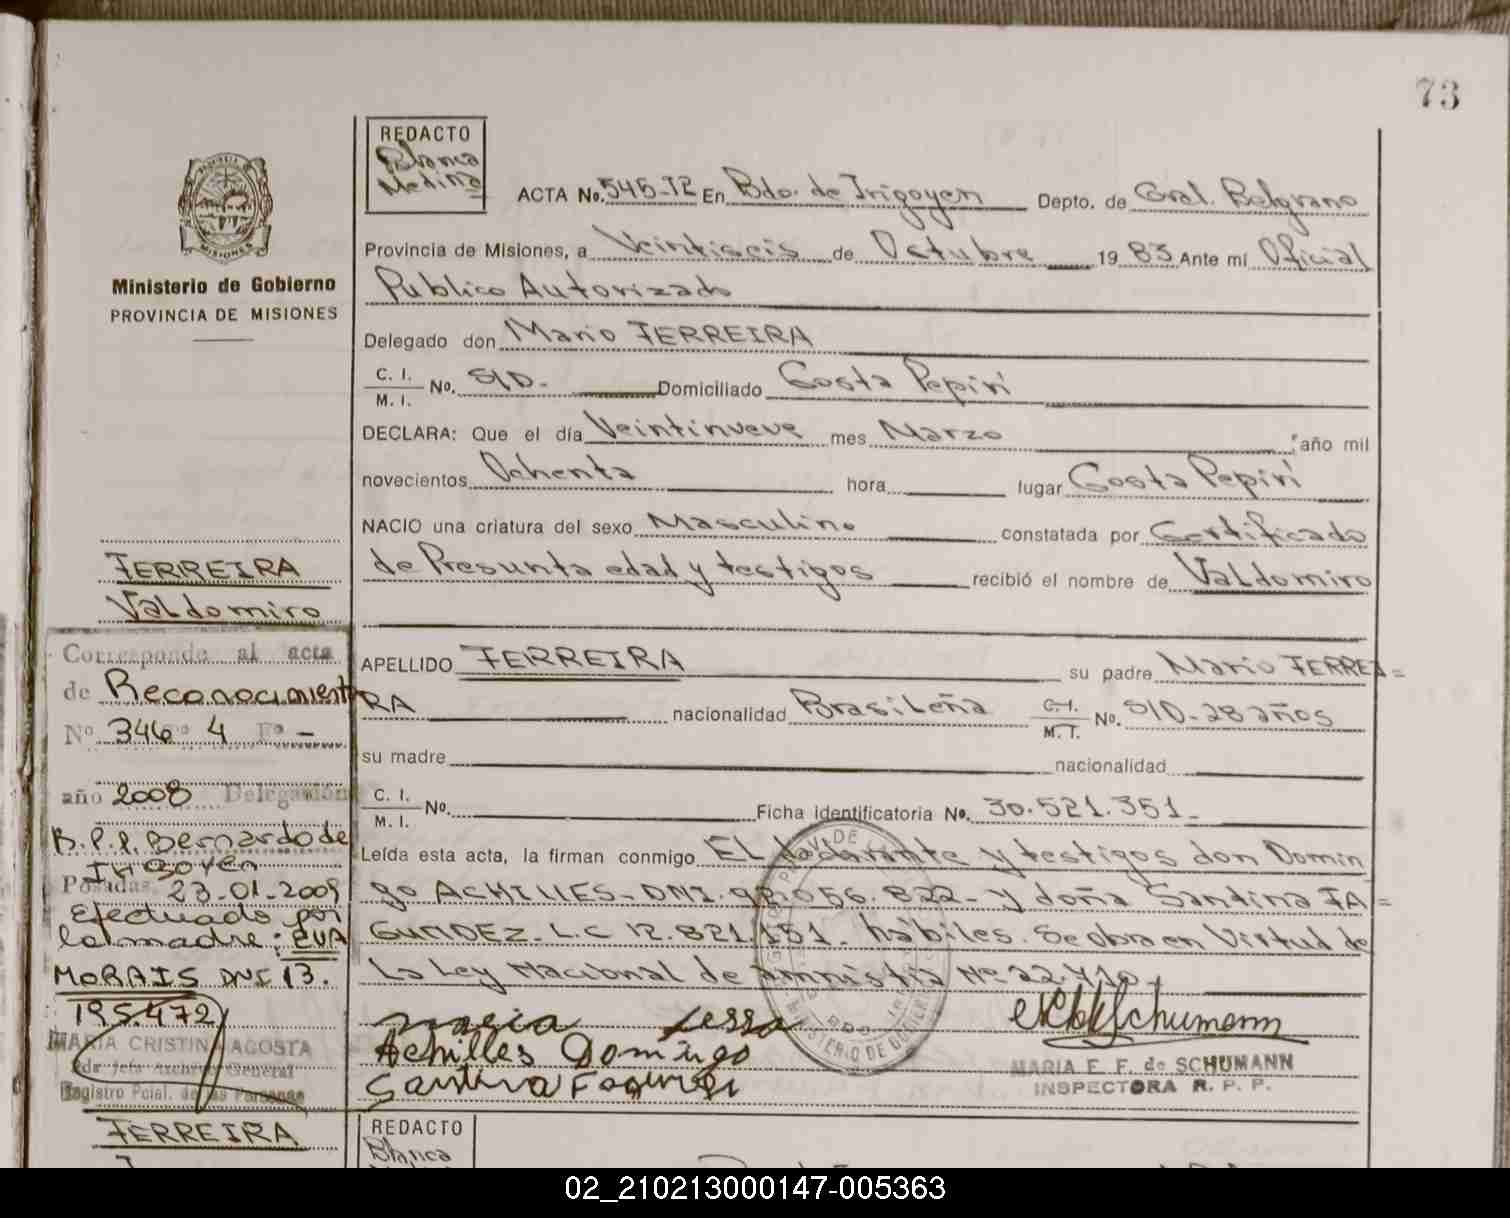 73
REDACTO
Blanca
Medina
ACTA No. 545-T2 En Bdo. de Irigoyen Depto. de Gral. Belgrano
Provincia de Misiones, a Veintiseis de Octubre 1983 Ante mí Oficial
Publico Autorizado
Delegado don Mario FERREIRA
C. I.
M. I. No. S/D. Domiciliado Costa Pepirí
DECLARA: Que el día Veintinueve mes Marzo año mil
novecientos Ochenta hora lugar Costa Pepirí
NACIO una criatura del sexo Masculino constatada por Certificado
de Presunta edad y testigos recibió el nombre de Valdomiro
APELLIDO FERREIRA su padre Mario FERREI=
RA nacionalidad Brasileña C. I. M. I. No. S/D-28 años
su madre nacionalidad
C. I.
M. I. No. Ficha identificatoria No. 30.521.351-
Leída esta acta, la firman conmigo EL declarante y testigos don Domin
go ACHILLES-DNI. 92.056.822- y doña Santina FA=
GUNDEZ-L.C 12.821.151. hábiles. Se obra en Virtud de
La Ley Nacional de Amnistia Nº 22.410.
Achilles Domingo
MARIA E. F. de SCHUMANN
INSPECTORA R. P. P.
MISIONES
Ministerio de Gobierno
PROVINCIA DE MISIONES
FERREIRA
Valdomiro
Corresponde al acta
de Reconocimiento
Nº 346 Tº 4 Fº -
año 2008 Delegación
B.P.P. Bernardo de
Irigoyen
Posadas, 23-01-2009
Efectuado por
la madre: EVA
MORAIS DNI 13.
195.472
MARIA CRISTINA ACOSTA
Jefe Archivo General
Registro Pcial. de las Personas
FERREIRA
REDACTO
Blanca
02_210213000147-005363